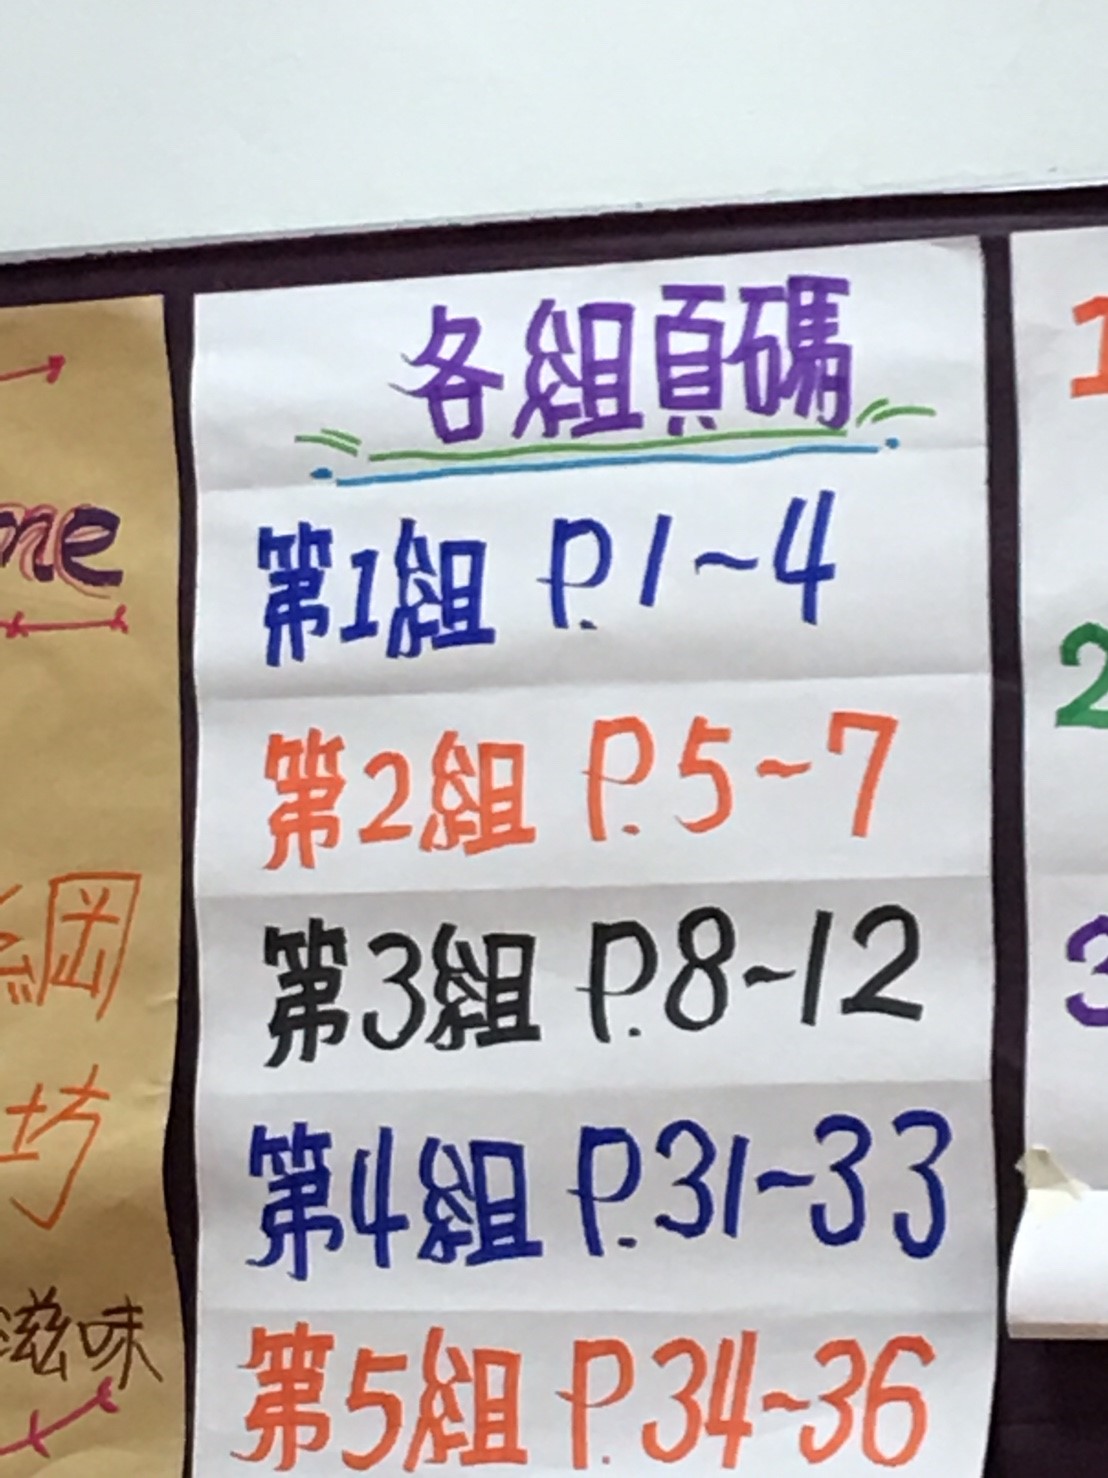 各組頁碼
第1組 P.1~4
第2組 P.5~7
第3組 P.8~12
第4組 P.31~33
第5組 P.34~36
me
綱
坊
滋味
1
2
3